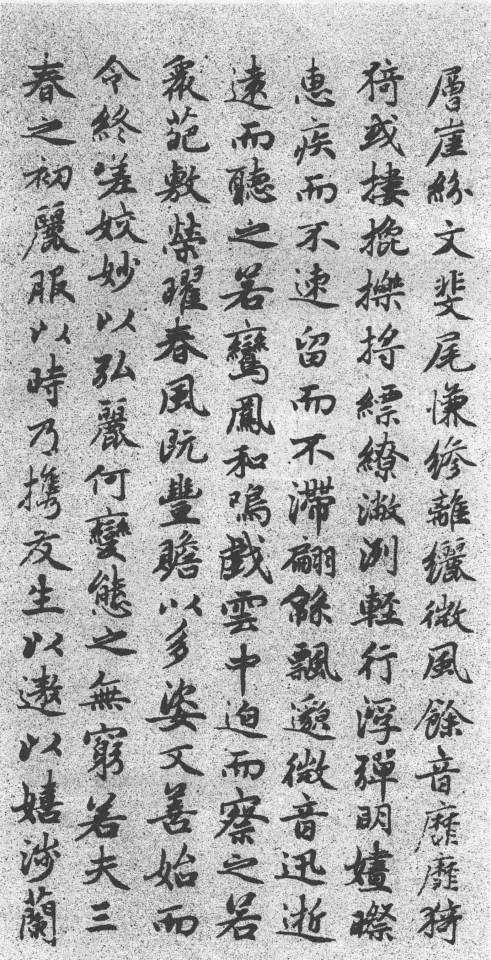 層崖紛文斐尾慊縿離纚微風餘音靡靡猗
猗或摟㧰擽捋縹繚潎冽輕行浮彈明嫿㬠
惠疾而不速留而不滯翩緜飄邈微音迅逝
遠而聽之若鸞鳳和鳴戲雲中迫而察之若
衆葩敷榮曜春風既豐贍以多姿又善始而
令終嗟姣妙以弘麗何變態之無窮若夫三
春之初麗服以時乃攜友生以遨以嬉涉蘭